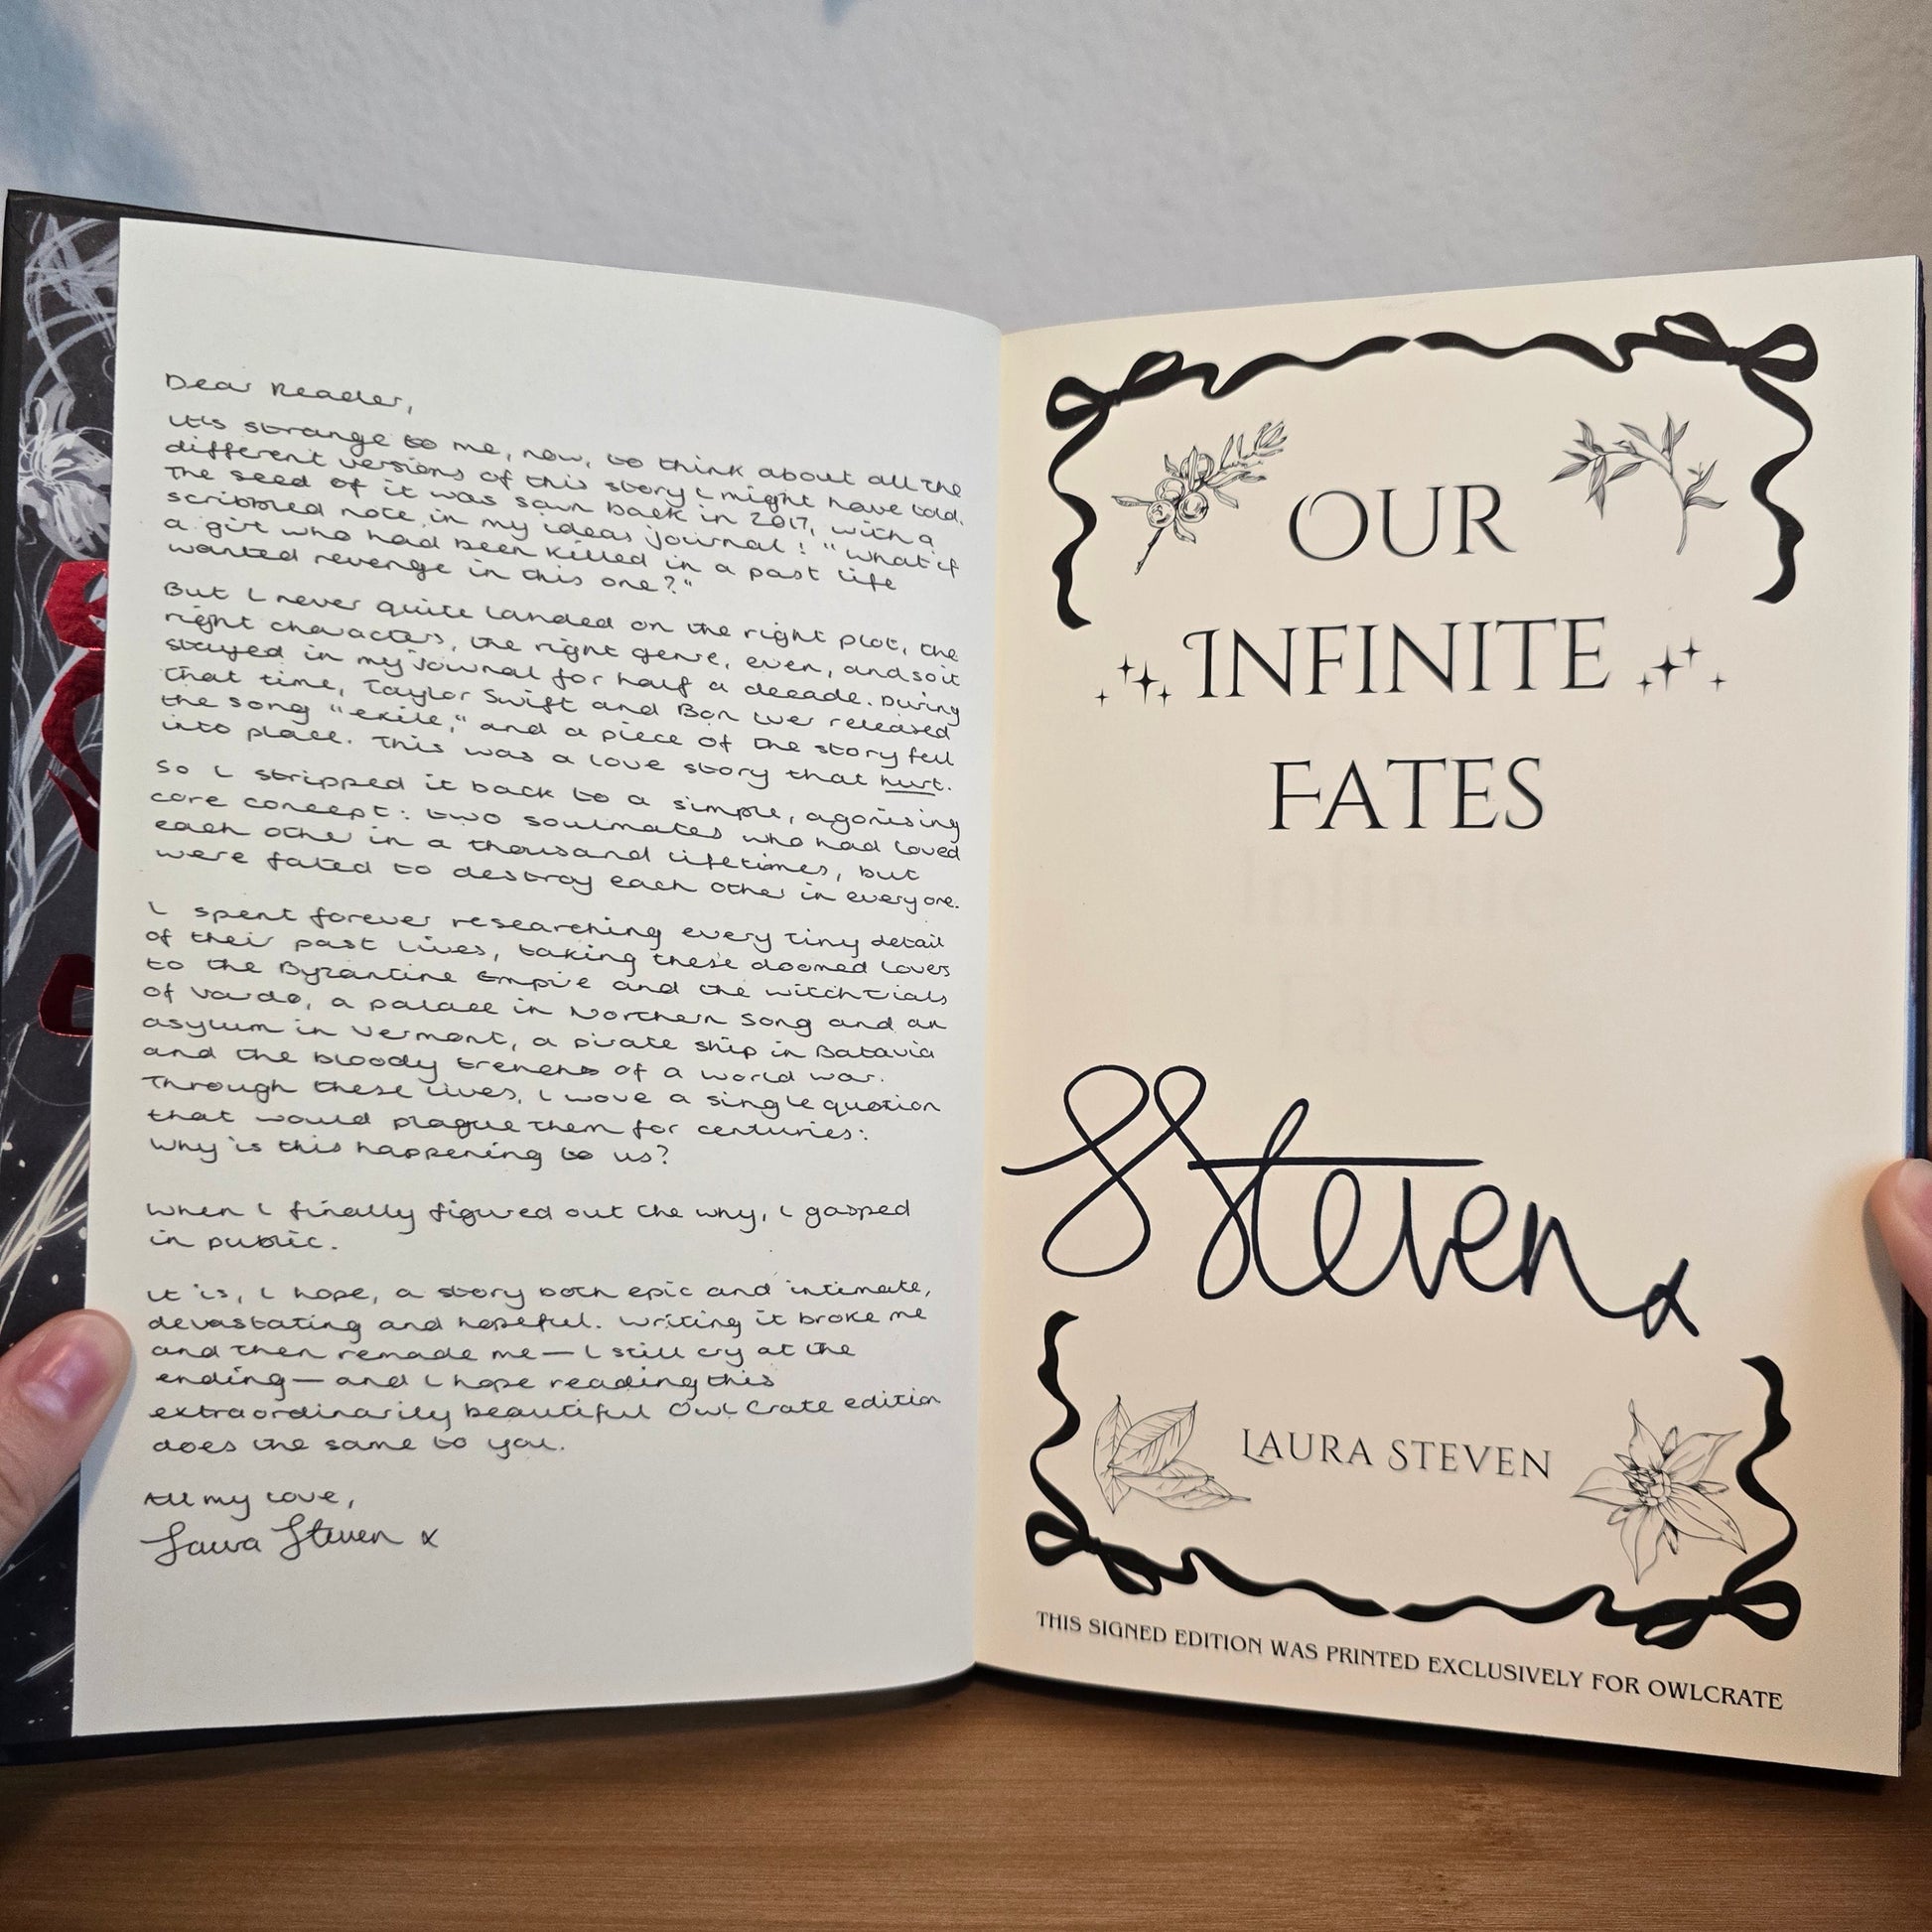 Dear Reader,
It's strange to me, now, to think about all the
different versions of this story I might have told.
The seed of it was sown back in 2017, with a
scribbled note in my ideas journal: "What if
a girl who had been killed in a past life
wanted revenge in this one?"
But I never quite landed on the right plot, the
right characters, the right genre, even, and so it
stayed in my journal for half a decade. During
that time, Taylor Swift and Bon Iver released
the song "exile," and a piece of the story fell
into place. This was a love story that hurt.
So I stripped it back to a simple, agonising
core concept: two soulmates who had loved
each other in a thousand lifetimes, but
were fated to destroy each other in every one.
I spent forever researching every tiny detail
of their past lives, taking these doomed lovers
to the Byzantine Empire and the witch trials
of Vardø, a palace in Northern Song and an
asylum in Vermont, a pirate ship in Batavia
and the bloody trenches of a world war.
Through these lives, I wove a single question
that would plague them for centuries:
Why is this happening to us?
When I finally figured out the why, I gasped
in public.
It is, I hope, a story both epic and intimate,
devastating and hopeful. Writing it broke me
and then remade me — I still cry at the
ending — and I hope reading this
extraordinarily beautiful OwlCrate edition
does the same to you.
All my love,
Laura Steven x
OUR
INFINITE
FATES
LSteven x
LAURA STEVEN
THIS SIGNED EDITION WAS PRINTED EXCLUSIVELY FOR OWLCRATE